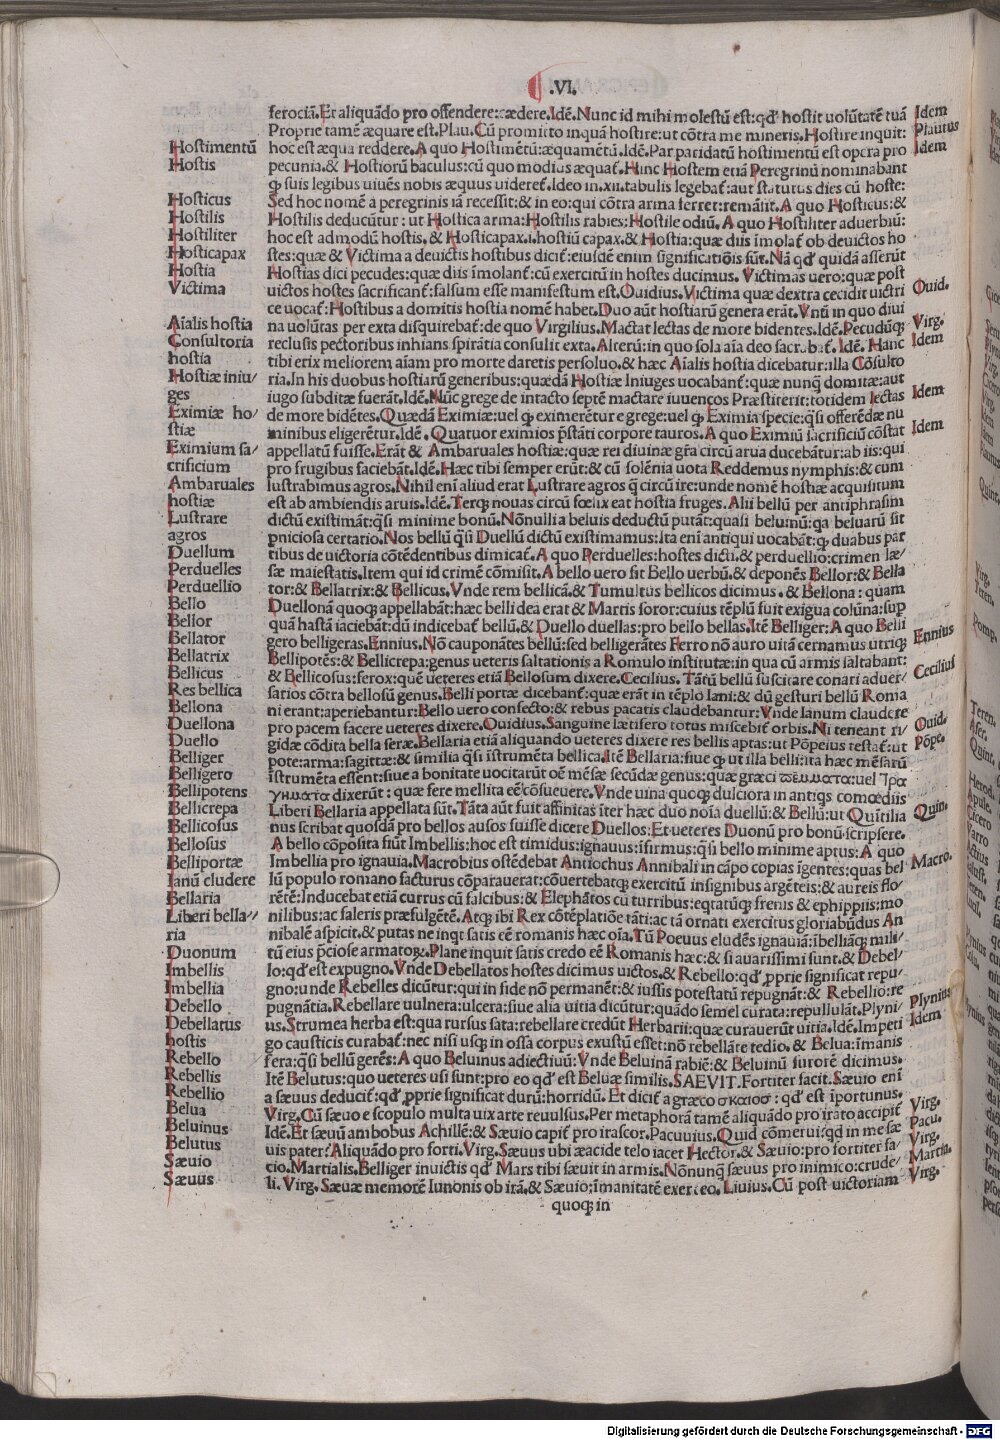 .VI.
ferociā.Et aliquādo pro offendere:cædere.Idē.Nunc id mihi molestū est:qd' hostit uolūtatē tuā Idem
Proprie tamē æquare est.Plau.Cū promitto inquā hostire:ut cōtra me mineris.Hostire inquit: Plautus
Hostimentū hoc est æqua reddere.A quo Hostimētū:æquamētū.Idē.Par paridatū hostimentū est opera pro Idem
Hostis pecunia.& Hostiorū baculus:cū quo modius æquat̄.Hinc Hostem etiā Peregrinū nominabant
ꝙ suis legibus uiuēs nobis æquus uideret̄.Ideo in.xii.tabulis legebat̄:aut status dies cū hoste:
Hosticus Sed hoc nomē a peregrinis iā recessit:& in eo:qui cōtra arma ferret:remāsit.A quo Hosticus:&
Hostilis Hostilis deducūtur: ut Hostica arma:Hostilis rabies:Hostile odiū.A quo Hostiliter aduerbiū:
Hostiliter hoc est admodū hostis.& Hosticapax.i.hostiū capax.& Hostia:quæ diis īmolat̄ ob deuictos ho
Hosticapax stes:quæ & Victima a deuictis hostibus dicit̄:eiusdē enim significatiōis sūt.Nā qd' quidā asserūt
Hostia Hostias dici pecudes:quæ diis īmolant̄:cū exercitū in hostes ducimus. Victimas uero:quæ post
Victima uictos hostes sacrificant̄:falsum esse manifestum est.Ouidius.Victima quæ dextra cecidit uictri Ouid.
ce uocat̄:Hostibus a domitis hostia nomē habet.Duo aūt hostiarū genera erāt.Vnū in quo diui
Aīalis hostia na uolūtas per exta disquirebat̄:de quo Virgilius.Mactat lectas de more bidentes.Idē.Pecudūꝗ Virg.
Consultoria reclusis pectoribus inhians spirātia consulit exta.Alterū:in quo sola aīa deo sacrabat̄.Idē.Hanc Idem
hostia tibi erix meliorem aīam pro morte daretis persoluo.& hæc Aīalis hostia dicebatur:illa Cōsulto
Hostiæ iniu/ ria.In his duobus hostiarū generibus:quædā Hostiæ Iniuges uocabant̄:quæ nunꝗ domitæ:aut
ges iugo subditæ fuerāt.Idē.Nūc grege de intacto septē mactare iuuencos Præstiterit:totidem lectas Idem
Eximiæ ho/ de more bidētes.Quædā Eximiæ:uel ꝙ eximerētur e grege:uel ꝙ Eximia specie:q̄si offerēdæ nu
stiæ minibus eligerētur.Idē.Quatuor eximios p̄stāti corpore tauros.A quo Eximiū sacrificiū cōstat Idem
Eximium sa/ appellatū fuisse.Erāt & Ambaruales hostiæ:quæ rei diuinæ gr̄a circū arua ducebātur:ab iis:qui
crificium pro frugibus faciebāt.Idē.Hæc tibi semper erūt:& cū solēnia uota Reddemus nymphis:& cum
Ambaruales lustrabimus agros.Nihil enī aliud erat Lustrare agros q̄ circū ire:unde nomē hostiæ acquisitum
hostiæ est ab ambiendis aruis.Idē.Terꝗ nouas circū fœlix eat hostia fruges.Alii bellū per antiphrasim
Lustrare dictū existimāt:q̄si minime bonū.Nōnulli a beluis deductū putāt:quasi beluinū:qa beluarū sit
agros p̄niciosa certatio.Nos bellū q̄si Duellū dictū existimamus:Ita enī antiqui uocabāt:ꝙ duabus par
Duellum tibus de uictoria cōtēdentibus dimicat̄.A quo Perduelles:hostes dicti.& perduellio:crimen læ/
Perduelles sæ maiestatis.Item qui id crimē cōmisit.A bello uero fit Bello uerbū.& deponēs Bellor:& Bella
Perduellio tor:& Bellatrix:& Bellicus.Vnde rem bellicā.& Tumultus bellicos dicimus.& Bellona: quam
Bello Duellonā quoꝗ appellabāt:hæc belli dea erat & Martis soror:cuius tēplū fuit exigua colūna:sup
Bellor quā hastā iaciebāt:dū indicebat̄ bellū.& Duello duellas:pro bello bellas.Itē Belliger:A quo Belli
Bellator gero belligeras.Ennius.Nō cauponātes bellū:sed belligerātes Ferro nō auro uitā cernamus utriꝗ Ennius
Bellatrix Bellipotēs:& Bellicrepa:genus ueteris saltationis a Romulo institutæ:in qua cū armis saltabant:
Bellicus & Bellicosus:ferox:quē ueteres etiā Bellosum dixere.Cecilius.Tātū bellū suscitare conari aduer/ Cecilius
Res bellica sarios cōtra bellosū genus.Belli portæ dicebant̄:quæ erāt in tēplo Iani:& dū gesturi bellū Roma
Bellona ni erant:aperiebantur:Bello uero confecto:& rebus pacatis claudebantur:Vnde Ianum claudere
Duellona pro pacem facere ueteres dixere.Ouidius.Sanguine lætifero totus miscebit̄ orbis.Ni teneant ri/ Ouid.
Duello gidæ cōdita bella seræ.Bellaria etiā aliquando ueteres dixere res bellis aptas:ut Pōpeius testat̄:ut Pōpe.
Belliger pote:arma:sagittæ:& similia q̄si īstrumēta bellica.Itē Bellaria:siue ꝙ ut illa belli:ita hæc mēsarū
Belligero īstrumēta essent:siue a bonitate uocitarūt oē mēsæ secūdæ genus:quæ græci πέμματα:uel Τρα
Bellipotens γήματα dixerūt: quæ fere mellita eē cōsueuere.Vnde uina quoꝗ dulciora in antiqs comœdiis
Bellicrepa Liberi Bellaria appellata sūt.Tāta aūt fuit affinitas īter hæc duo noīa duellū:& Bellū:ut Quītilia Quin.
Bellicosus nus scribat quosdā pro bellos ausos fuisse dicere Duellos:Et ueteres Duonū pro bonū scripsere.
Bellosus A bello cōposita fiūt Imbellis:hoc est timidus:ignauus:īfirmus:q̄si bello minime aptus:A quo
Belliportæ Imbellia pro ignauia.Macrobius ostēdebat Antiochus Annibali in cāpo copias īgentes:quas bel Macro.
Ianū cludere lū populo romano facturus cōparauerat:cōuertebatꝗ exercitū insignibus argēteis:& aureis flo/
Bellaria rētē:Inducebat etiā currus cū falcibus:& Elephātos cū turribus:eqtatūꝗ frenis & ephippiis:mo
Liberi bella/ nilibus:ac faleris præfulgētē.Atꝗ ibi Rex cōtēplatiōe tāti:ac tā ornati exercitus gloriabūdus An
ria nibalē aspicit.& putas ne inqt satis cē romanis hæc oīa.Tū Poenus eludēs ignauiā:ībelliāꝗ mili/
Duonum tū eius p̄ciose armatoꝝ.Plane inquit satis credo eē Romanis hæc:& si auarissimi sunt.& Debel/
Imbellis lo:qd' est expugno.Vnde Debellatos hostes dicimus uictos.& Rebello:qd' ꝓprie significat repu/
Imbellia gno:unde Rebelles dicūtur:qui in fide nō permanēt:& iussis potestatū repugnāt:& Rebellio:re
Debello pugnātia.Rebellare uulnera:ulcera:siue alia uitia dicūtur:quādo semel curata:repullulāt.Plyni/ Plynius
Debellatus us.Strumea herba est:qua rursus sata:rebellare credūt Herbarii:quæ curauerūt uitia.Idē.Imperi Idem
hostis go causticis curabat̄:nec nisi usꝗ in ossa corpus exustū esset:nō rebellāte tedio.& Belua:īmanis
Rebello fera:q̄si bellū gerēs:A quo Beluinus adiectiuū:Vnde Beluinā rabiē:& Beluinū furorē dicimus.
Rebellis Itē Belutus:quo ueteres usi sunt:pro eo qd' est Beluæ similis.SAEVIT.Fortiter facit.Sæuio enī
Rebellio a sæuus deducit̄:qd' ꝓprie significat durū:horridū.Et dicit̄ a græco σκαιοσ: qd' est īportunus.
Belua Virg.Cū sæuo e scopulo multa uix arte reuulsus.Per metaphorā tamē aliquādo pro irato accipit̄ Virg.
Beluinus Idē.Et sæuū ambobus Achillē:& Sæuio capit̄ pro irascor.Pacuuius.Quid cōmerui?qd in me sæ Pacu.
Belutus uis pater?Aliquādo pro forti.Virg.Sæuus ubi æacide telo iacet Hector.& Sæuio:pro fortiter fa/ Virg.
Sæuio cio.Martialis.Belliger inuictis qd' Mars tibi sæuit in armis.Nōnunꝗ sæuus pro inimico:crude/ Martia.
Sæuus li. Virg.Sæuæ memorē Iunonis ob irā.& Sæuio:īmanitatē exerceo.Liuius.Cū post uictoriam Virg.
quoꝗ in
Digitalisierung gefördert durch die Deutsche Forschungsgemeinschaft - DFG